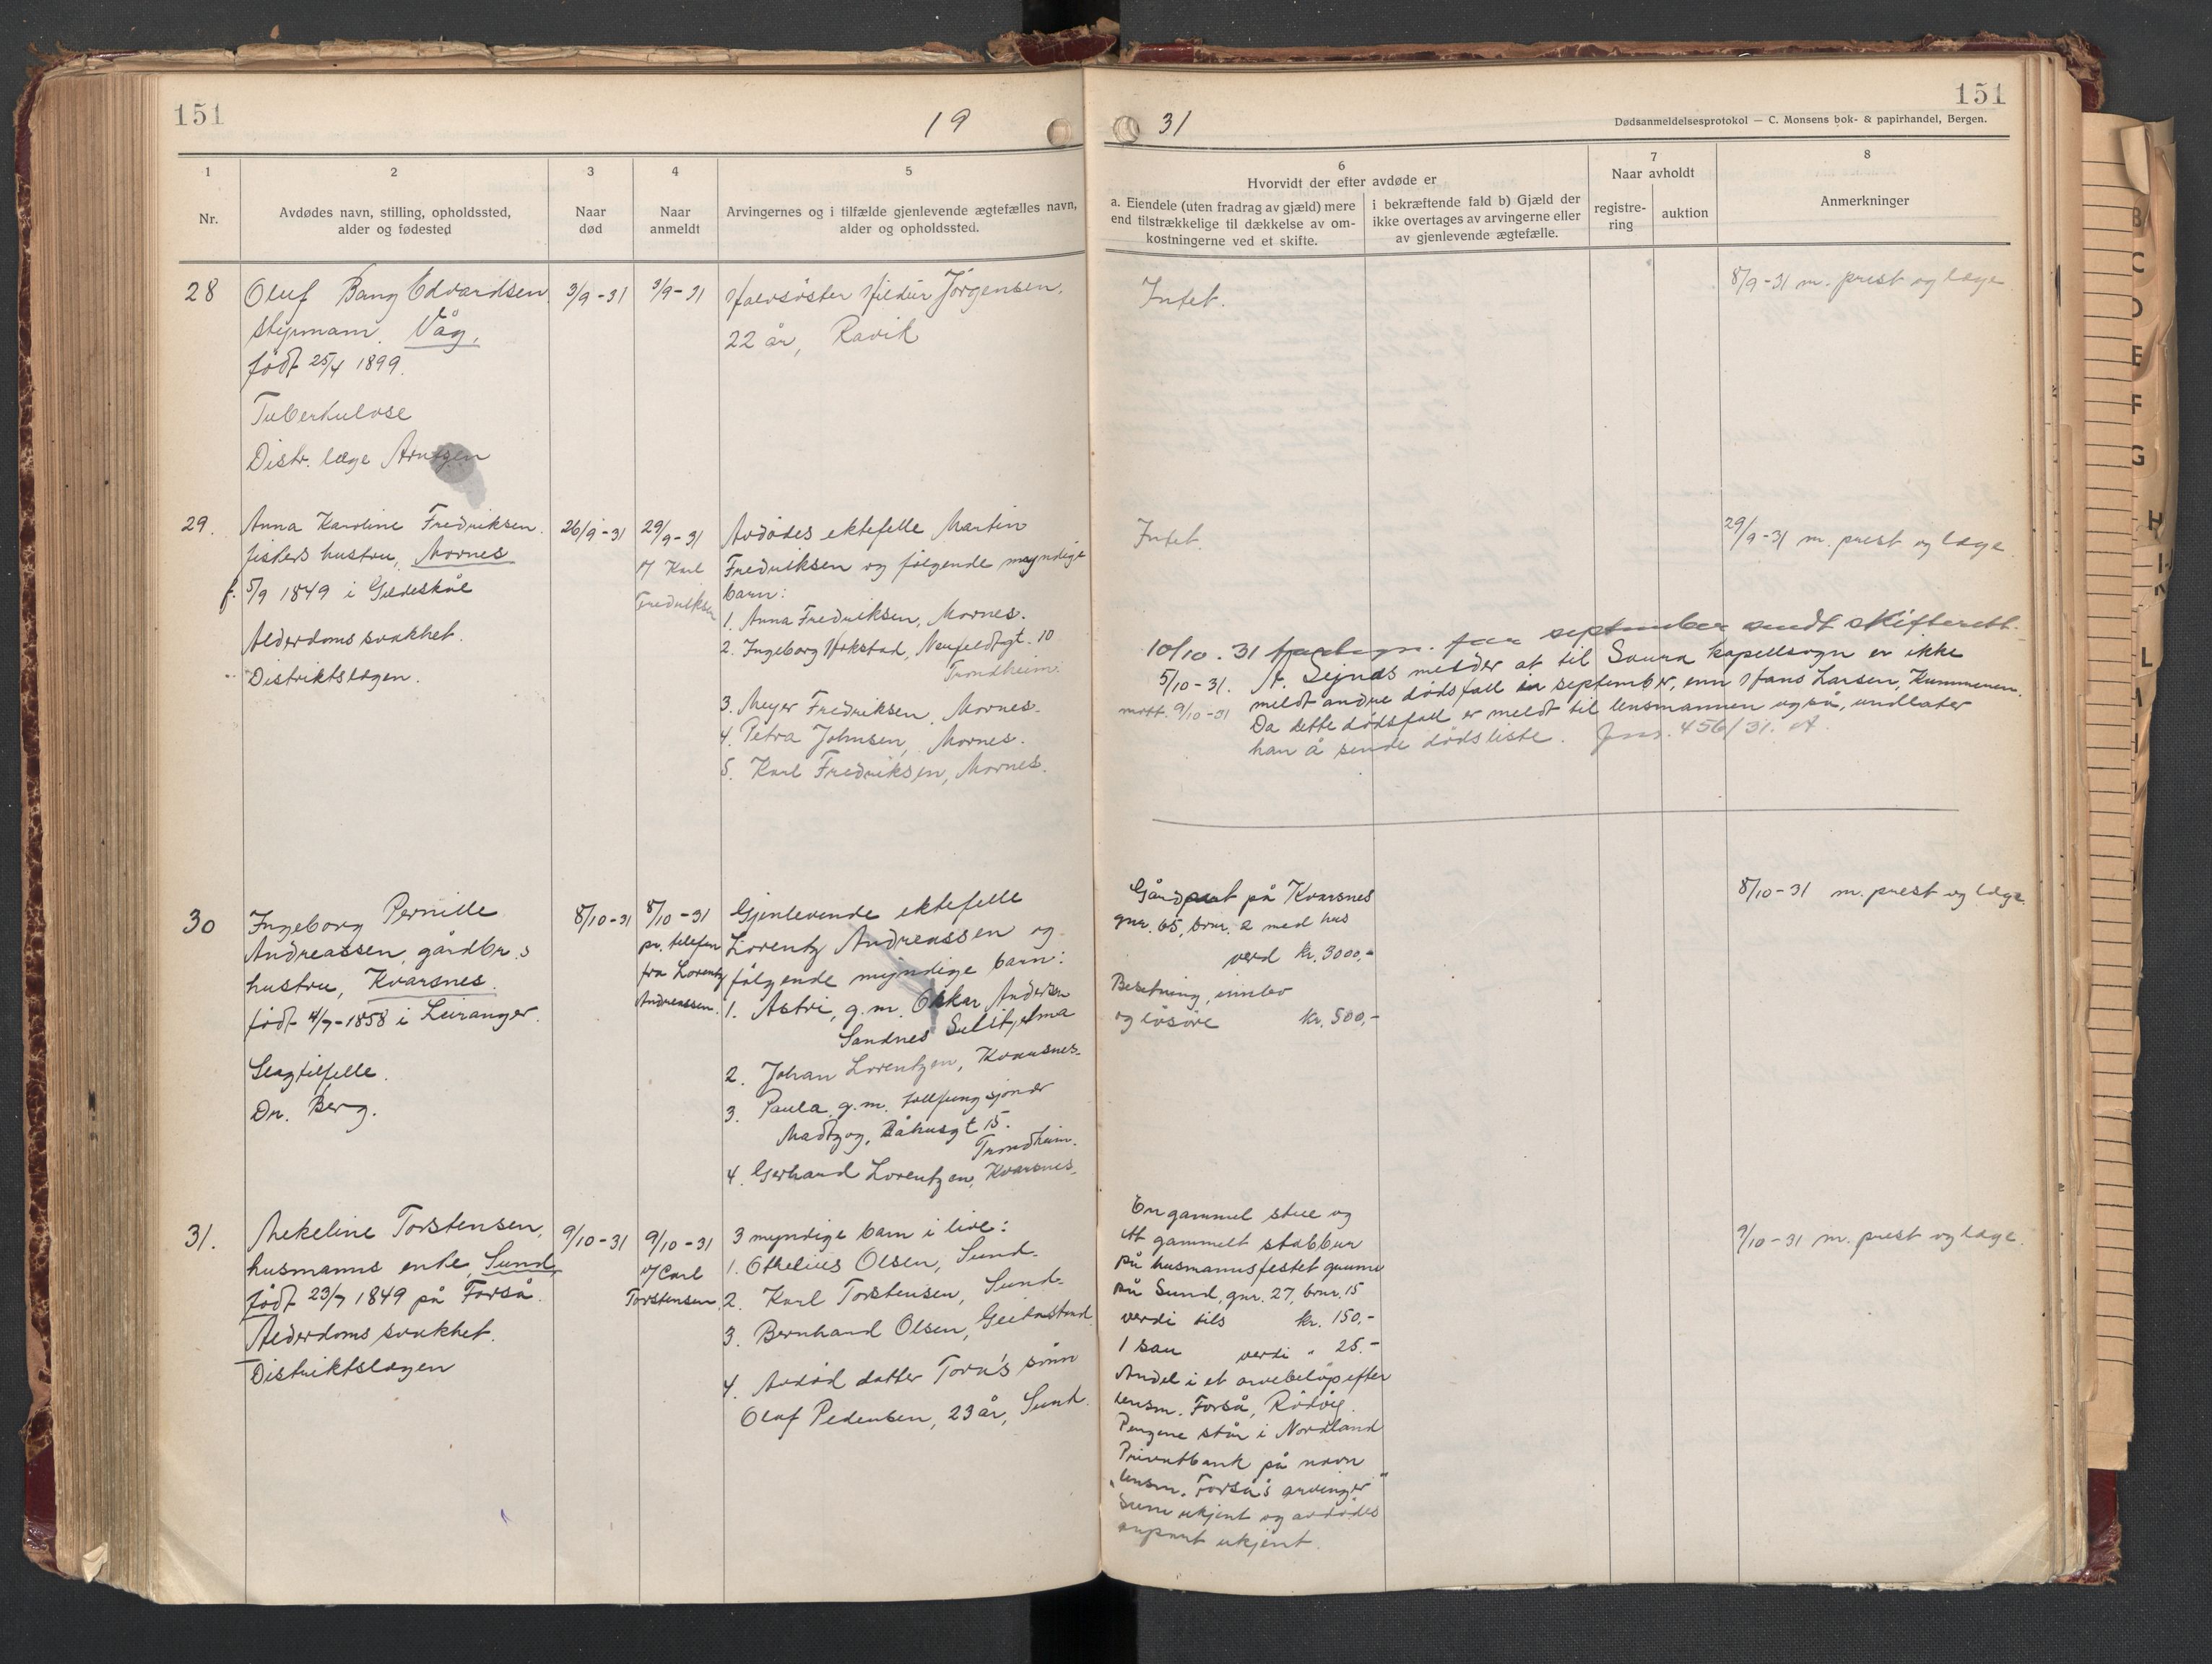 151
19
31
151
Dødsanmeldelsesprotokol — C. Monsens bok- & papirhandel, Bergen.
1
Nr.
2
Avdødes navn, stilling, opholdssted,
alder og fødested
3
Naar
død
4
Naar
anmeldt
5
Arvingernes og i tilfælde gjenlevende ægtefælles navn,
alder og opholdssted.
6
Hvorvidt der efter avdøde er
a. Eiendele (uten fradrag av gjæld) mere
end tilstrækkelige til dækkelse av om-
kostningerne ved et skifte.
i bekræftende fald b) Gjæld der
ikke overtages av arvingerne eller
av gjenlevende ægtefælle.
7
Naar avholdt
registre-
ring
auktion
8
Anmerkninger
28
Oluf Bang Edvardsen
styrmann. Våg,
født 25/4 1899.
Tuberkulose
Distr. læge Arntzen
3/9-31
3/9-31
Halvsøster Hildur Jørgensen,
22 år, Ravik
Intet.
8/9-31 m. prest og læge
29.
Anna Karoline Fredriksen.
fiskers hustru, Mornes
f. 5/9 1849 i Gildeskål
Alderdomssvakhet.
Distriktslægen.
26/9-31
29/9-31
v/ Karl
Fredriksen
Avdødes ektefelle Martin
Fredriksen og følgende myndige
barn:
1. Anna Fredriksen, Mornes.
2. Ingeborg Hokstad, Neufeldtgt. 10
Trondheim.
3. Meyer Fredriksen, Mornes.
4. Petra Johnsen, Mornes.
5. Karl Fredriksen, Mornes.
Intet.
29/9-31 m. prest og læge
10/10. 31 for september sendt skifterett.
5/10-31. melder at til Saura kapellsogn er ikke
mott. 9/10-31 meldt andre dødsfall i september, enn Hans Larsen, Kummenen.
Da dette dødsfall er meldt til lensmannen også, undlater
han å sende dødsliste. Jnr. 456/31. A.
30
Ingeborg Pernille
Andreassen, gårdbr.s
hustru, Kvarsnes.
født 4/7-1858 i Leiranger.
Slagtilfelle.
Dr. Berg.
8/10-31
8/10-31
pr. telefon
fra Lorentz
Andreassen.
Gjenlevende ektefelle
Lorentz Andreassen og
følgende myndige barn:
1. Astri, g.m. Oskar Andersen
Sandnes Sulitjelma
2. Johan Lorentzen, Kvarsnes.
3. Paula g.m. tollfungsjonær
Madtzog, Båhusgt 15.
Trondheim.
4. Gerhard Lorentzen, Kvarsnes.
Gårdpart på Kvarsnes
gnr. 65, brnr. 2 med hus
verd kr. 3000,-
Besetning, innbo
og løsøre kr. 500,-
8/10-31 m. prest og læge.
31.
Mekeline Torstensen,
husmanns enke, Sund,
født 23/7 1849 på Forså.
Alderdomssvakhet.
Distriktslægen
9/10-31
9/10-31
v/ Carl
Torstensen
3 myndige barn i live:
1. Othelius Olsen, Sund.
2. Karl Torstensen, Sund.
3. Bernhard Olsen,
4. Avdød datter Tora's sønn
Olaf Pedersen, 23 år, Sund.
En gammel stue og
ett gammelt stabbur
på husmannsfestet grunn
på Sund, gnr. 27, brnr. 15
verdi tils kr. 150,-
1 sau verdi " 25.-
Andel i et arvebeløp efter
lensm. Forså, Rødøy.
Pengene står i Nordland
Privatbank på navn
"lensm. Forså's arvinger"
Sum ukjent og avdødes
anpart ukjent.
9/10-31 m. prest og læge.
B
C
D
E
F
G
H
L